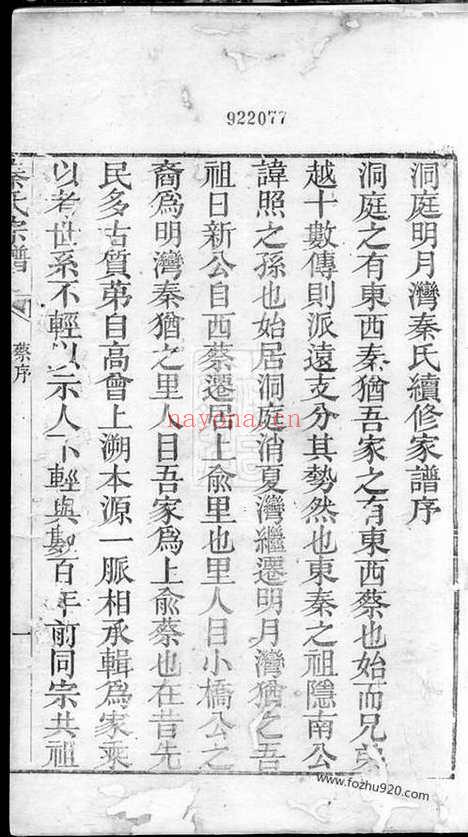 922077
洞庭明月灣秦氏續修家譜序
洞庭之有東西秦猶吾家之有東西蔡也始而兄弟
越十數傳則派遠支分其勢然也東秦之祖隱南公
諱照之孫也始居洞庭消夏灣繼遷明月灣猶之吾
祖日新公自西蔡遷居上俞里也里人目小橋公之
裔爲明灣秦猶之里人目吾家爲上俞蔡也在昔先
民多古質苐自高曾上溯本源一脈相承輯爲家乘
以考世系不輕以示人不輕與數百年前同宗共祖
秦氏宗譜
蔡序
一
nayona.cn
www.fozhu920.com